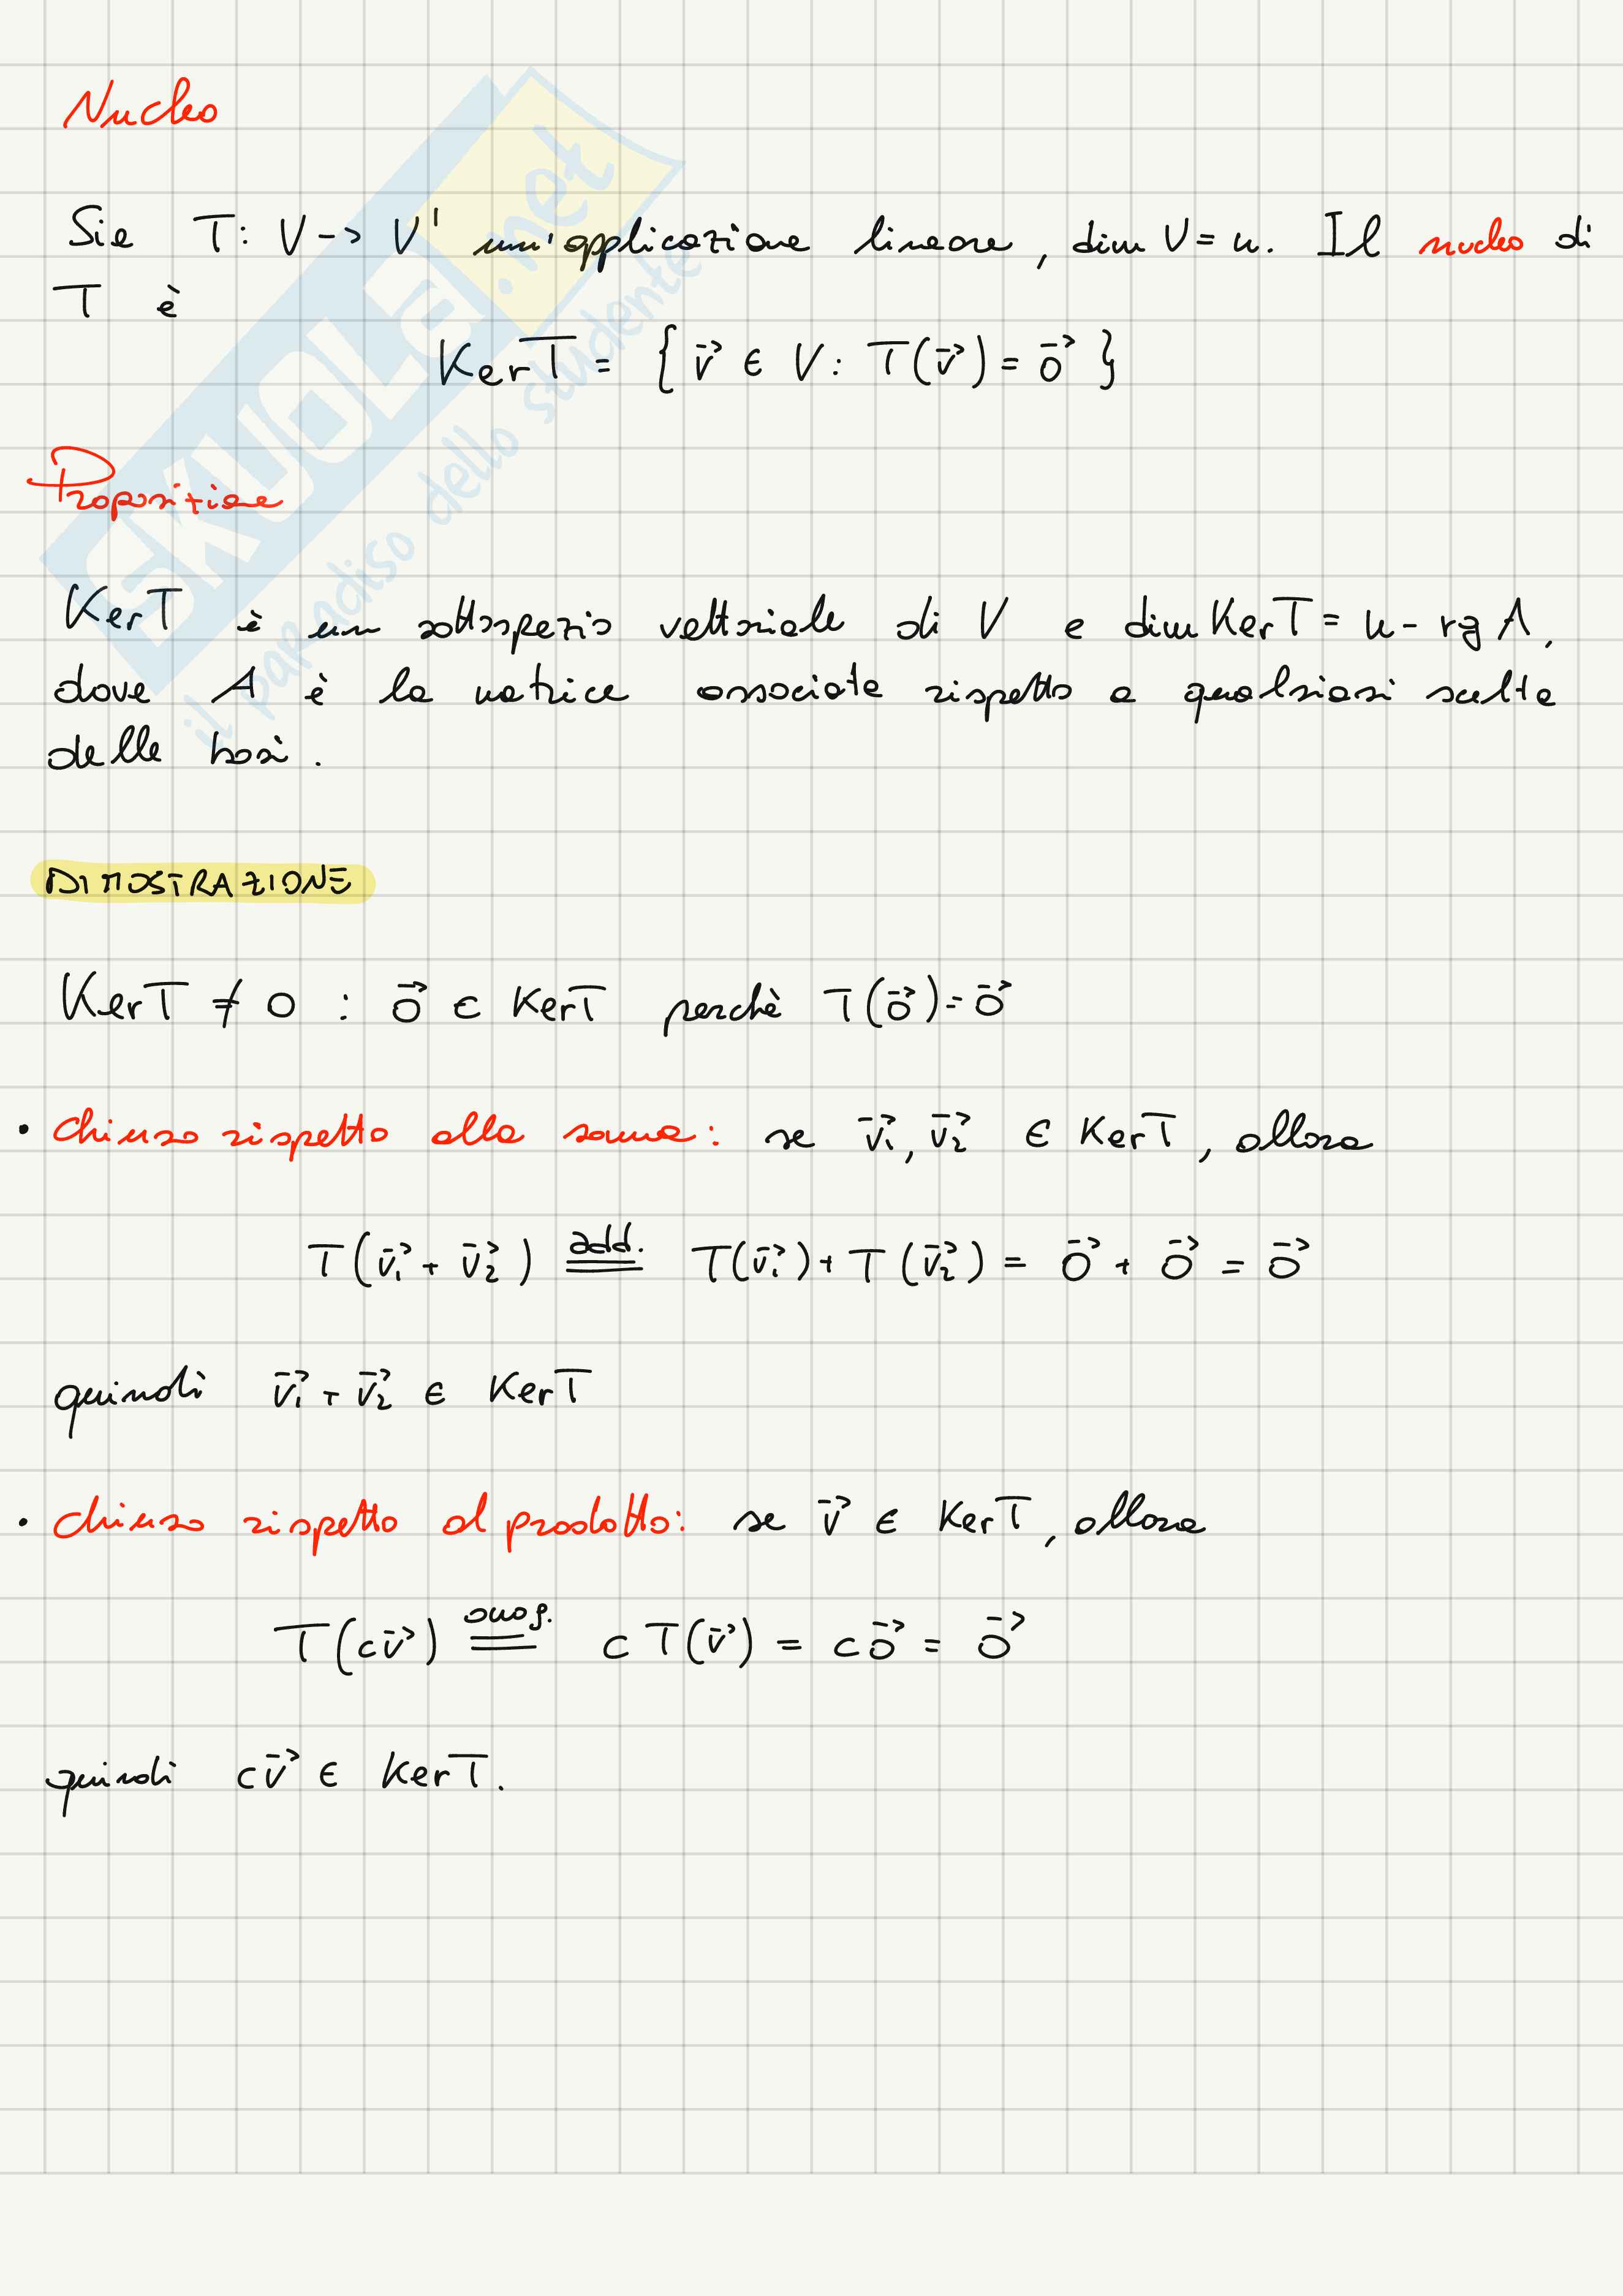 Nucleo
Sia T: V -> V' un'applicazione lineare, dim V = n. Il nucleo di
T è
KerT = { v⃗ ∈ V : T(v⃗) = 0⃗ }
Proposizione
KerT è un sottospazio vettoriale di V e dim KerT = n - rg A,
dove A è la matrice associata rispetto a qualsiasi scelta
delle basi.
DIMOSTRAZIONE
KerT ≠ 0 : 0⃗ ∈ KerT perchè T(0⃗) = 0⃗
• chiuso rispetto alla somma: se v⃗₁, v⃗₂ ∈ KerT, allora
T(v⃗₁ + v⃗₂) add. = T(v⃗₁) + T(v⃗₂) = 0⃗ + 0⃗ = 0⃗
quindi v⃗₁ + v⃗₂ ∈ KerT
• chiuso rispetto al prodotto: se v⃗ ∈ KerT, allora
T(cv⃗) omog. = c T(v⃗) = c0⃗ = 0⃗
quindi cv⃗ ∈ KerT.
SKUOLa.net
il paradiso dello studente